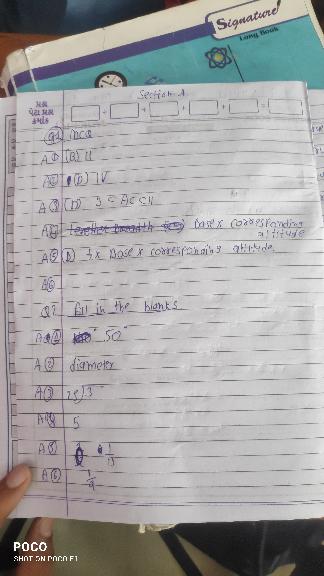 Signature!
Long Book
Section A
પ્રશ્ન
પેટા પ્રશ્ન
ક્રમાંક
+ + + + =
Q1 MCQ
A① (B) 11
A② (D) IV
A③ (D) 3 < AC < 11
A④ Base x corresponding altitude
A⑤ (D) Base x corresponding altitude
A⑥
Q2 Fill in the blanks
A① 50°
A② diameter
A③
A④ 5
A⑤ 1/15
A⑥ 1/9
POCO
SHOT ON POCO F1